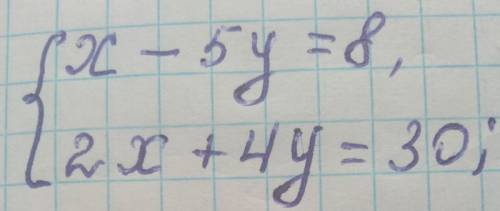 x - 5y = 8,
2x + 4y = 30;